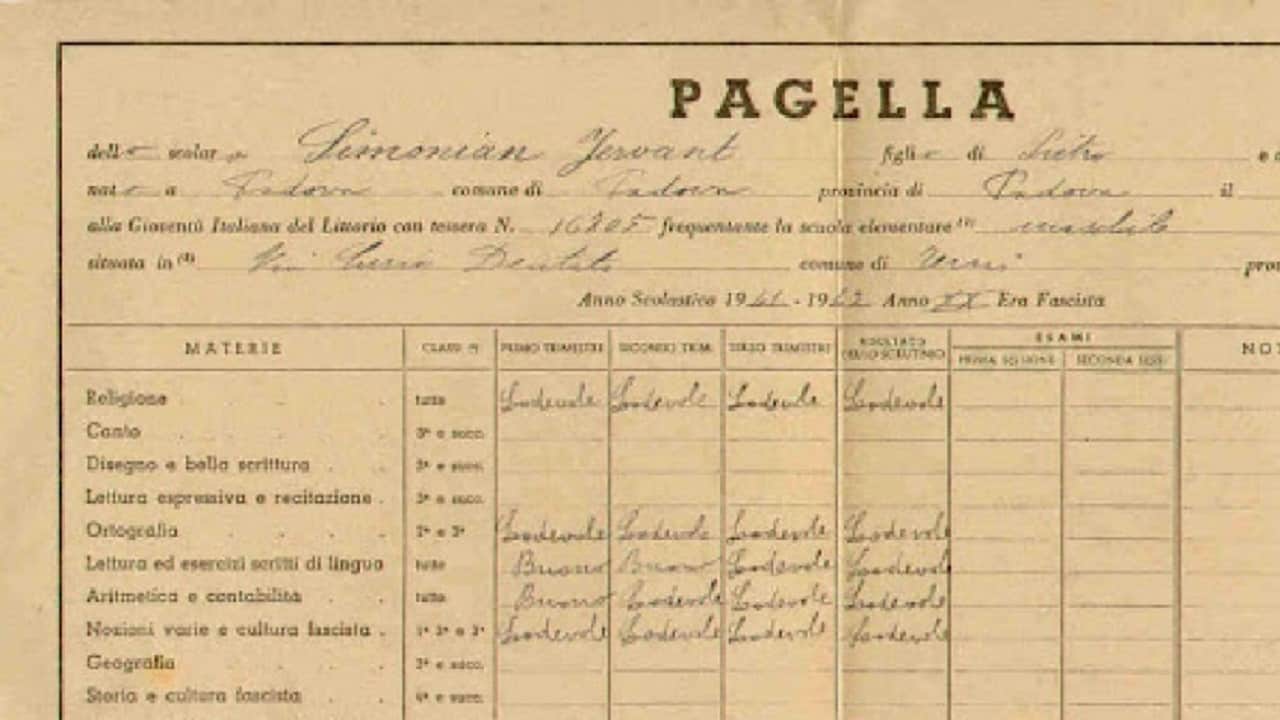 PAGELLA
dello scolaro Simonian Jervant figlio di Pietro e
nato a Padova comune di Padova provincia di Padova il
alla Gioventù Italiana del Littorio con tessera N. 16205 frequentante la scuola elementare maschile
situata in Via Curio Dentato comune di
Anno Scolastico 1941 - 1942 Anno XX Era Fascista
MATERIE CLASSI PRIMO TRIMESTRE SECONDO TRIM. TERZO TRIMESTRE RISULTATO DELLO SCRUTINIO ESAMI PRIMA SESSIONE SECONDA SESS. NOT
Religione tutte Lodevole Lodevole Lodevole Lodevole
Canto 3ª e succ.
Disegno e bella scrittura 3ª e succ.
Lettura espressiva e recitazione 3ª e succ.
Ortografia 2ª e 3ª Lodevole Lodevole Lodevole Lodevole
Lettura ed esercizi scritti di lingua tutte Buono Buono Lodevole Lodevole
Aritmetica e contabilità tutte Buono Lodevole Lodevole Lodevole
Nozioni varie e cultura fascista 1ª 2ª e 3ª Lodevole Lodevole Lodevole Lodevole
Geografia 3ª e succ.
Storia e cultura fascista 4ª e succ.